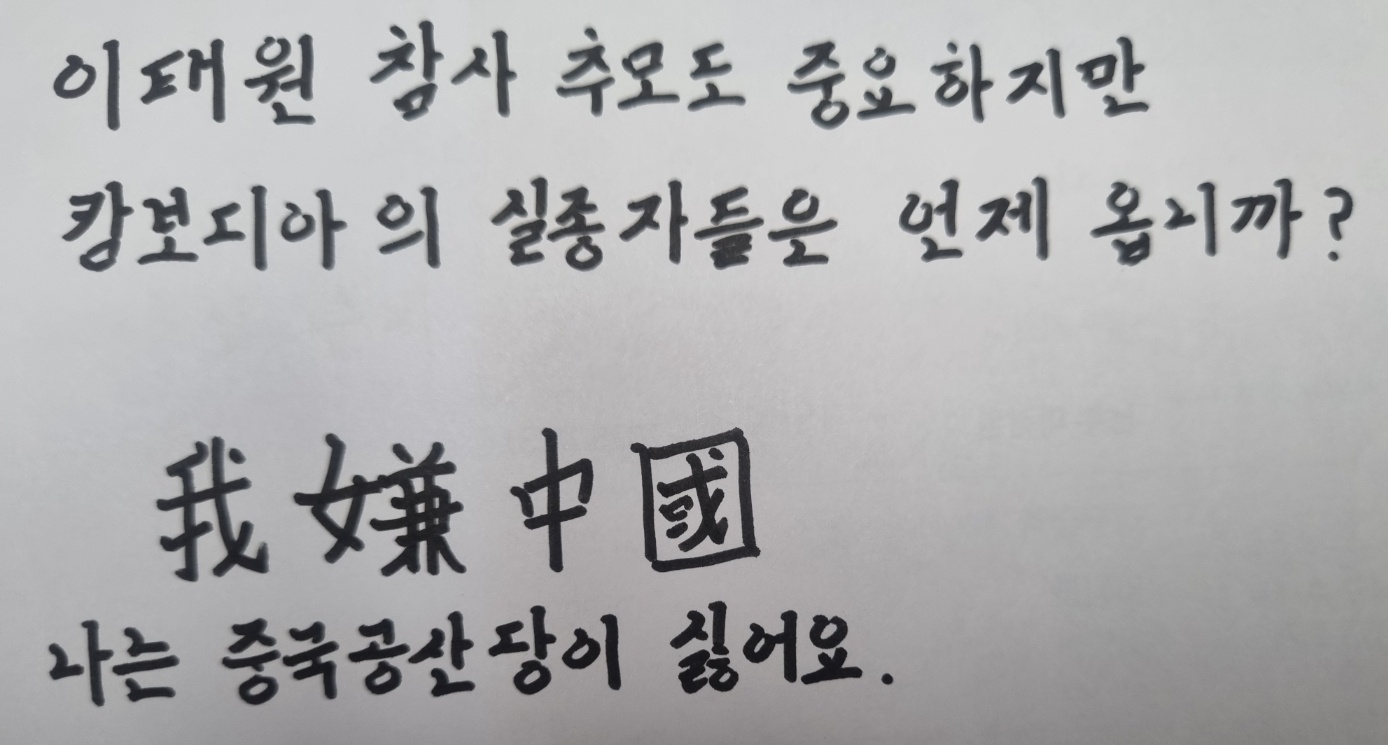 이태원 참사 추모도 중요하지만
캄보디아의 실종자들은 언제 옵니까?
我嫌中國
나는 중국공산당이 싫어요.